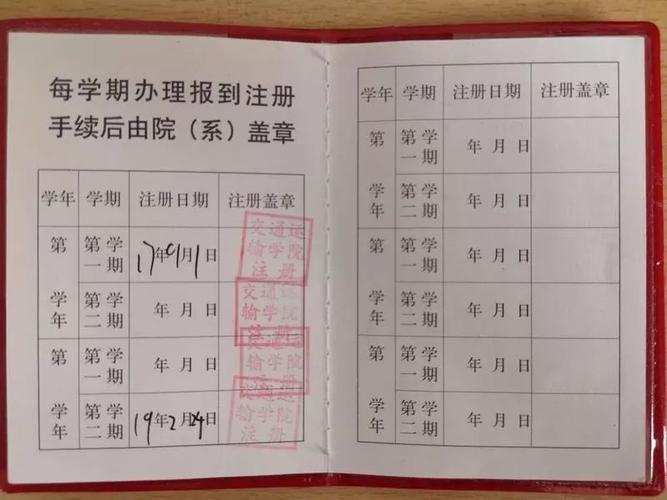 每学期办理报到注册
手续后由院（系）盖章
学年 学期 注册日期 注册盖章
第 第一学期 17年9月1日 交通运输学院注册
学年 第二学期 年 月 日 交通运输学院注册
第 第一学期 年 月 日 交通运输学院注册
学年 第二学期 19年2月24日 交通运输学院注册
学年 学期 注册日期 注册盖章
第 第一学期 年 月 日
学年 第二学期 年 月 日
第 第一学期 年 月 日
学年 第二学期 年 月 日
第 第一学期 年 月 日
学年 第二学期 年 月 日